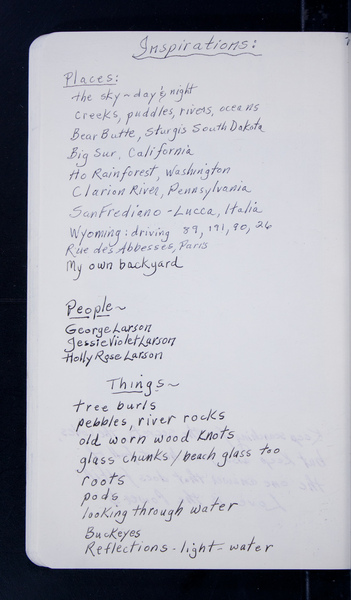 Inspirations:
Places:
the sky ~ day & night
creeks, puddles, rivers, oceans
Bear Butte, Sturgis South Dakota
Big Sur, California
Ho Rainforest, Washington
Clarion River, Pennsylvania
San Frediano - Lucca, Italia
Wyoming: driving 89, 191, 90, 26
Rue des Abbesses, Paris
My own backyard
People ~
George Larson
Jessie Violet Larson
Holly Rose Larson
Things ~
tree burls
pebbles, river rocks
old worn wood knots
glass chunks / beach glass too
roots
pods
looking through water
Buckeyes
Reflections - light - water